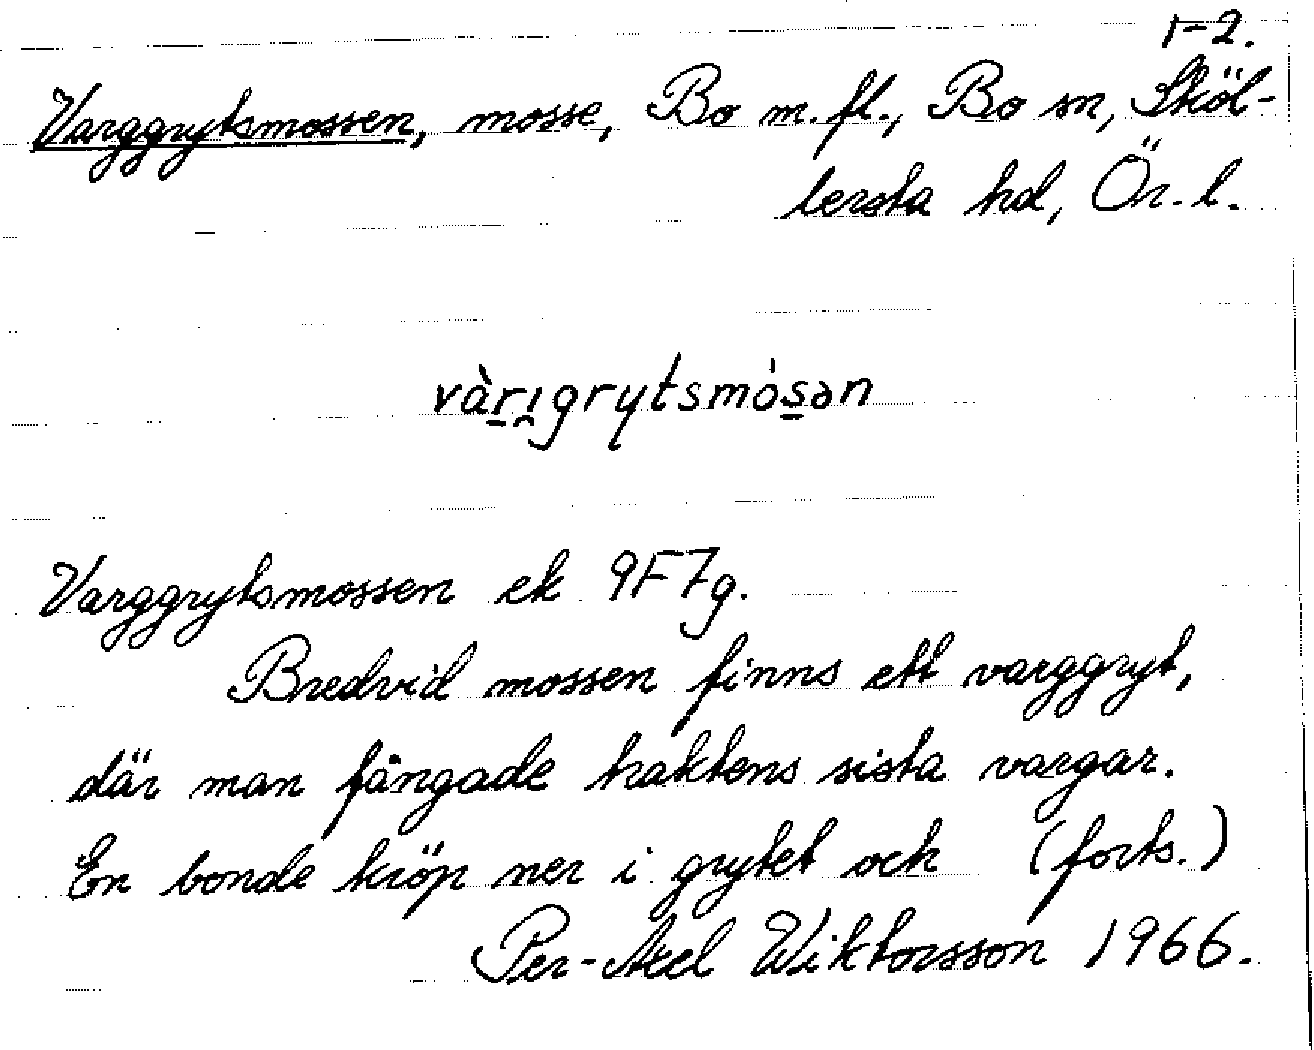 1-2.
Varggrytsmossen, mosse, Bo m. fl., Bo sn, Sköl-
lersta hd, Ör. l.
vàr̠ı̯grytsmós̠ən
Varggrytsmossen ek 9F7g.
Bredvid mossen finns ett varggryt,
där man fångade traktens sista vargar.
En bonde kröp ner i grytet och (forts.)
Per-Axel Wiktorsson 1966.